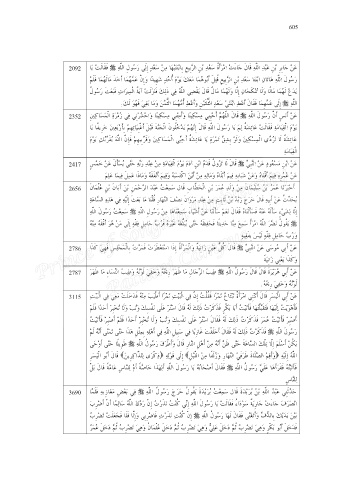 605
2092 عَنْ جَابِرِ بْنِ عَبْدِ اللَّهِ قَالَ جَاءَتِ امْرَأَةُ سَعْدِ بْنِ الرَّبِيعِ بِابْنَتَيْهَا مِنْ سَعْدٍ إِلَى رَسُولِ اللَّهِ ﷺ فَقَالَتْ يَا
رَسُولَ اللَّهِ هَاتَانِ ابْنَتَا سَعْدِ بْنِ الرَّبِيعِ قُتِلَ أَبُوهُمَا مَعَكَ يَوْمَ أُحُدٍ شَهِيدًا وَإِنَّ عَمَّهُمَا أَخَذَ مَالَهُمَا فَلَمْ
يَدَعْ لَهُمَا مَالًا وَلَا تُنْكَحَانِ إِلَّا وَلَهُمَا مَالٌ قَالَ يَقْضِي اللَّهُ فِي ذَلِكَ فَنَزَلَتْ آيَةُ الْمِيرَاثِ فَبَعَثَ رَسُولُ
اللَّهِ ﷺ إِلَى عَمِّهِمَا فَقَالَ أَعْطِ ابْنَتَيْ سَعْدٍ الثُّلُثَيْنِ وَأَعْطِ أُمَّهُمَا الثُّمُنَ وَمَا بَقِيَ فَهُوَ لَكَ
2352 عَنْ أَنَسٍ أَنَّ رَسُولَ اللَّهِ ﷺ قَالَ اللَّهُمَّ أَحْيِنِي مِسْكِينًا وَأَمِتْنِي مِسْكِينًا وَاحْشُرْنِي فِي زُمْرَةِ الْمَسَاكِينِ
يَوْمَ الْقِيَامَةِ فَقَالَتْ عَائِشَةُ لِمَ يَا رَسُولَ اللَّهِ قَالَ إِنَّهُمْ يَدْخُلُونَ الْجَنَّةَ قَبْلَ أَغْنِيَائِهِمْ بِأَرْبَعِينَ خَرِيفًا يَا
عَائِشَةُ لَا تَرُدِّي الْمِسْكِينَ وَلَوْ بِشِقِّ تَمْرَةٍ يَا عَائِشَةُ أَحِبِّي الْمَسَاكِينَ وَقَرِّبِيهِمْ فَإِنَّ اللَّهَ يُقَرِّبُكِ يَوْمَ
الْقِيَامَةِ
2417 عَنْ ابْنِ مَسْعُودٍ عَنْ النَّبِيِّ ﷺ قَالَ لَا تَزُولُ قَدَمُ ابْنِ آدَمَ يَوْمَ الْقِيَامَةِ مِنْ عِنْدِ رَبِّهِ حَتَّى يُسْأَلَ عَنْ خَمْسٍ
عَنْ عُمُرِهِ فِيمَ أَفْنَاهُ وَعَنْ شَبَابِهِ فِيمَ أَبْلَاهُ وَمَالِهِ مِنْ أَيْنَ اكْتَسَبَهُ وَفِيمَ أَنْفَقَهُ وَمَاذَا عَمِلَ فِيمَا عَلِمَ
2656 أَخْبَرَنَا عُمَرُ بْنُ سُلَيْمَانَ مِنْ وَلَدِ عُمَرَ بْنِ الْخَطَّابِ قَالَ سَمِعْتُ عَبْدَ الرَّحْمَنِ بْنَ أَبَانَ بْنِ عُثْمَانَ
يُحَدِّثُ عَنْ أَبِيهِ قَالَ خَرَجَ زَيْدُ بْنُ ثَابِتٍ مِنْ عِنْدِ مَرْوَانَ نِصْفَ النَّهَارِ قُلْنَا مَا بَعَثَ إِلَيْهِ فِي هَذِهِ السَّاعَةِ
إِلَّا لِشَيْءٍ سَأَلَهُ عَنْهُ فَسَأَلْنَاهُ فَقَالَ نَعَمْ سَأَلَنَا عَنْ أَشْيَاءَ سَمِعْنَاهَا مِنْ رَسُولِ اللَّهِ ﷺ سَمِعْتُ رَسُولَ اللَّهِ
ﷺ يَقُولُ نَضَّرَ اللَّهُ امْرَأً سَمِعَ مِنَّا حَدِيثًا فَحَفِظَهُ حَتَّى يُبَلِّغَهُ غَيْرَهُ فَرُبَّ حَامِلِ فِقْهٍ إِلَى مَنْ هُوَ أَفْقَهُ مِنْهُ
وَرُبَّ حَامِلِ فِقْهٍ لَيْسَ بِفَقِيهٍ
2786 عَنْ أَبِي مُوسَى عَنْ النَّبِيِّ ﷺ قَالَ كُلُّ عَيْنٍ زَانِيَةٌ وَالْمَرْأَةُ إِذَا اسْتَعْطَرَتْ فَمَرَّتْ بِالْمَجْلِسِ فَهِيَ كَذَا
وَكَذَا يَعْنِي زَانِيَةً
2787 عَنْ أَبِي هُرَيْرَةَ قَالَ قَالَ رَسُولُ اللَّهِ ﷺ طِيبُ الرِّجَالِ مَا ظَهَرَ رِيحُهُ وَخَفِيَ لَوْنُهُ وَطِيبُ النِّسَاءِ مَا ظَهَرَ
لَوْنُهُ وَخَفِيَ رِيحُهُ
3115 عَنْ أَبِي الْيَسَرِ قَالَ أَتَتْنِي امْرَأَةٌ تَبْتَاعُ تَمْرًا فَقُلْتُ إِنَّ فِي الْبَيْتِ تَمْرًا أَطْيَبَ مِنْهُ فَدَخَلَتْ مَعِي فِي الْبَيْتِ
فَأَهْوَيْتُ إِلَيْهَا فَقَبَّلْتُهَا فَأَتَيْتُ أَبَا بَكْرٍ فَذَكَرْتُ ذَلِكَ لَهُ قَالَ اسْتُرْ عَلَى نَفْسِكَ وَتُبْ وَلَا تُخْبِرْ أَحَدًا فَلَمْ
أَصْبِرْ فَأَتَيْتُ عُمَرَ فَذَكَرْتُ ذَلِكَ لَهُ فَقَالَ اسْتُرْ عَلَى نَفْسِكَ وَتُبْ وَلَا تُخْبِرْ أَحَدًا فَلَمْ أَصْبِرْ فَأَتَيْتُ
رَسُولَ اللَّهِ ﷺ فَذَكَرْتُ ذَلِكَ لَهُ فَقَالَ أَخَلَفْتَ غَازِيًا فِي سَبِيلِ اللَّهِ فِي أَهْلِهِ بِمِثْلِ هَذَا حَتَّى تَمَنَّى أَنَّهُ لَمْ
يَكُنْ أَسْلَمَ إِلَّا تِلْكَ السَّاعَةَ حَتَّى ظَنَّ أَنَّهُ مِنْ أَهْلِ النَّارِ قَالَ وَأَطْرَقَ رَسُولُ اللَّهِ ﷺ طَوِيلًا حَتَّى أَوْحَى
اللَّهُ إِلَيْهِ {وَأَقِمِ الصَّلَاةَ طَرَفَيِ النَّهَارِ وَزُلَفًا مِنَ اللَّيْلِ} إِلَى قَوْلِهِ {ذِكْرَى لِلذَّاكِرِينَ} قَالَ أَبُو الْيَسَرِ
فَأَتَيْتُهُ فَقَرَأَهَا عَلَيَّ رَسُولُ اللَّهِ ﷺ فَقَالَ أَصْحَابُهُ يَا رَسُولَ اللَّهِ أَلِهَذَا خَاصَّةً أَمْ لِلنَّاسِ عَامَّةً قَالَ بَلْ
لِلنَّاسِ
3690 حَدَّثَنِي عَبْدُ اللَّهِ بْنُ بُرَيْدَةَ قَالَ سَمِعْتُ بُرَيْدَةَ يَقُولُ خَرَجَ رَسُولُ اللَّهِ ﷺ فِي بَعْضِ مَغَازِيهِ فَلَمَّا
انْصَرَفَ جَاءَتْ جَارِيَةٌ سَوْدَاءُ فَقَالَتْ يَا رَسُولَ اللَّهِ إِنِّي كُنْتُ نَذَرْتُ إِنْ رَدَّكَ اللَّهُ سَالِمًا أَنْ أَضْرِبَ
بَيْنَ يَدَيْكَ بِالدُّفِّ وَأَتَغَنَّى فَقَالَ لَهَا رَسُولُ اللَّهِ ﷺ إِنْ كُنْتِ نَذَرْتِ فَاضْرِبِي وَإِلَّا فَلَا فَجَعَلَتْ تَضْرِبُ
فَدَخَلَ أَبُو بَكْرٍ وَهِيَ تَضْرِبُ ثُمَّ دَخَلَ عَلِيٌّ وَهِيَ تَضْرِبُ ثُمَّ دَخَلَ عُثْمَانُ وَهِيَ تَضْرِبُ ثُمَّ دَخَلَ عُمَرُ